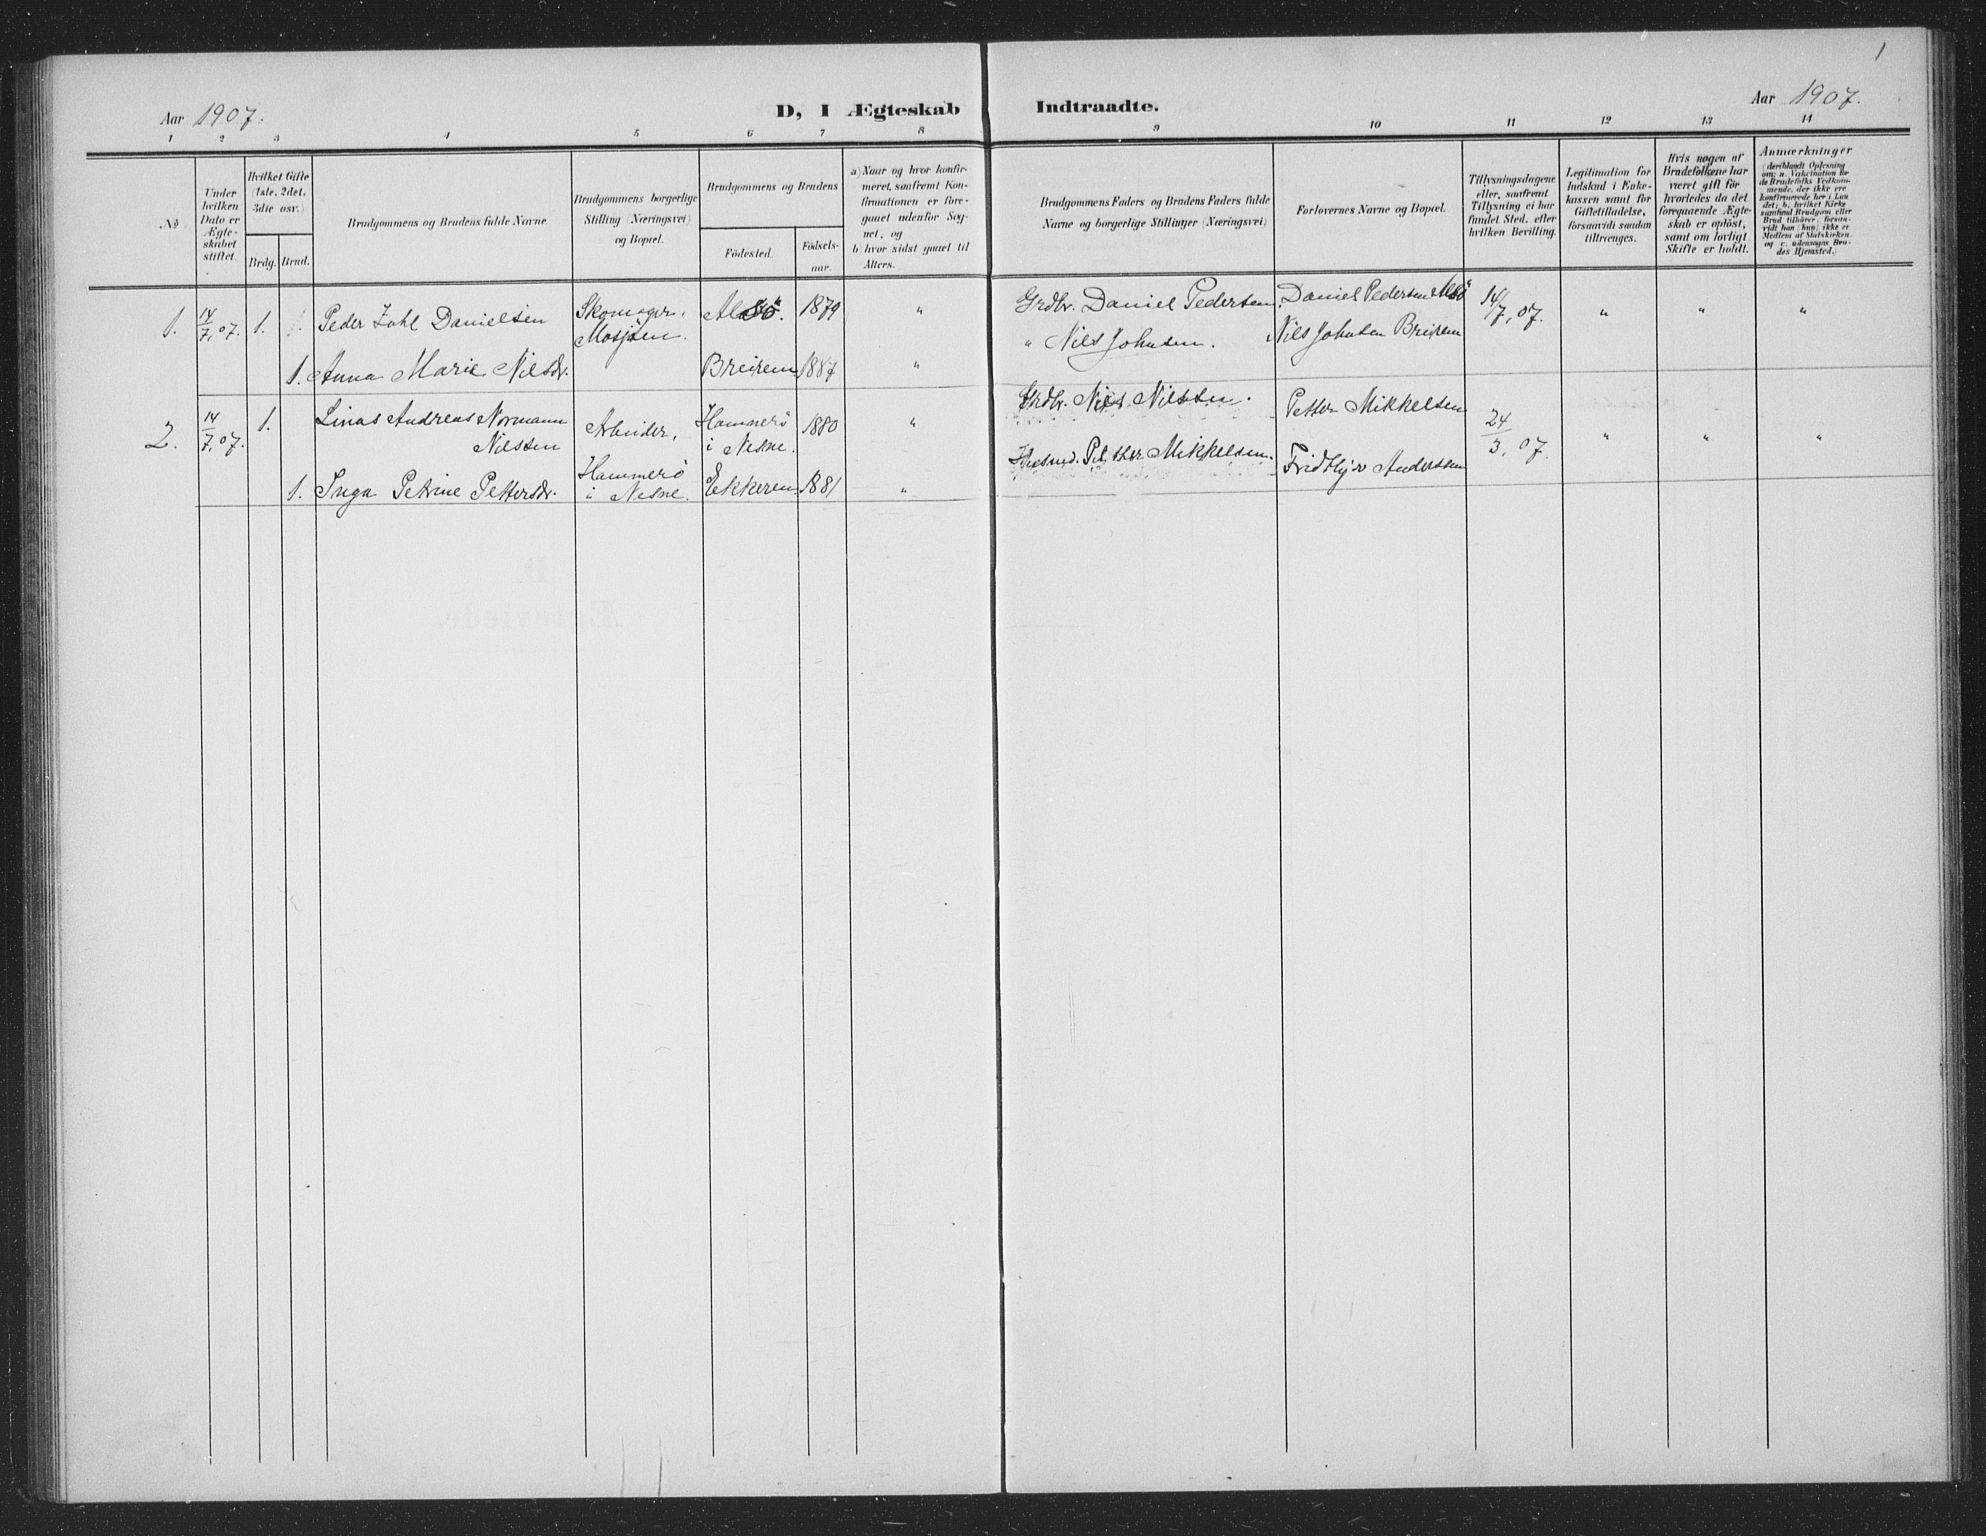 1
Aar 1907. D, I Ægteskab Indtraadte. Aar 1907.
1 2 3 4 5 6 7 8 9 10 11 12 13 14
No
Under hvilken Dato er Ægteskabet stiftet.
Hvilket Gifte (1ste, 2det, 3die osv.)
Brdg. Brud.
Brudgommens og Brudens fulde Navne
Brudgommens borgerlige Stilling (Næringsvei) og Bopæl.
Brudgommens og Brudens
Födested. Födselsaar.
a) Naar og hvor konfirmeret, saafremt Konfirmationen er foregaaet udenfor Sognet, og
b) hvor sidst gaaet til Alters.
Brudgommens Faders og Brudens Faders fulde Navne og borgerlige Stillinger (Næringsvei)
Forlovernes Navne og Bopæl.
Tillysningsdagene eller, saafremt Tillysning ei har fundet Sted, efter hvilken Bevilling.
Legitimation for Indskud i Enkekassen samt for Giftetilladelse, forsaavidt saadan tiltrænges.
Hvis nogen af Brudefolkene har været gift før hvorledes da det foregaaende Ægteskab er oplöst, samt om lovligt Skifte er holdt.
Anmærkninger
(deriblandt Oplysning om: a. Vakcination for de Brudefolks Vedkommende, der ikke ere konfirmerede her i Landet; b. hvilket Kirkesamfund Brudgom eller Brud tilhörer, forsaavidt han (hun) ikke er Medlem af Statskirken, og c. udensogns Brudes Hjemsted.)
1. 14/7, 07. 1. Peder Zahl Danielsen Skomager, Mosjøen. 1879 " Grdbr. Daniel Pedersen. Daniel Pedersen 14/7, 07. " " "
1. Anna Marie Nilsdr. Breirem 1887 " " Nils Johnsen. Nils Johnsen Breirem
2. 14/7, 07. 1. Linas Andreas Normann Nilssen Arbeider, Hammerö i Nesne. 1880 " Grdbr. Nils Nilssen. Petter Mikkelsen 24/3, 07. " " "
1. Inga Petrine Pettersdr. Hammerö i Nesne. Ekkeren 1881 " Petther Mikkelsen. Fridthjov Anderssen